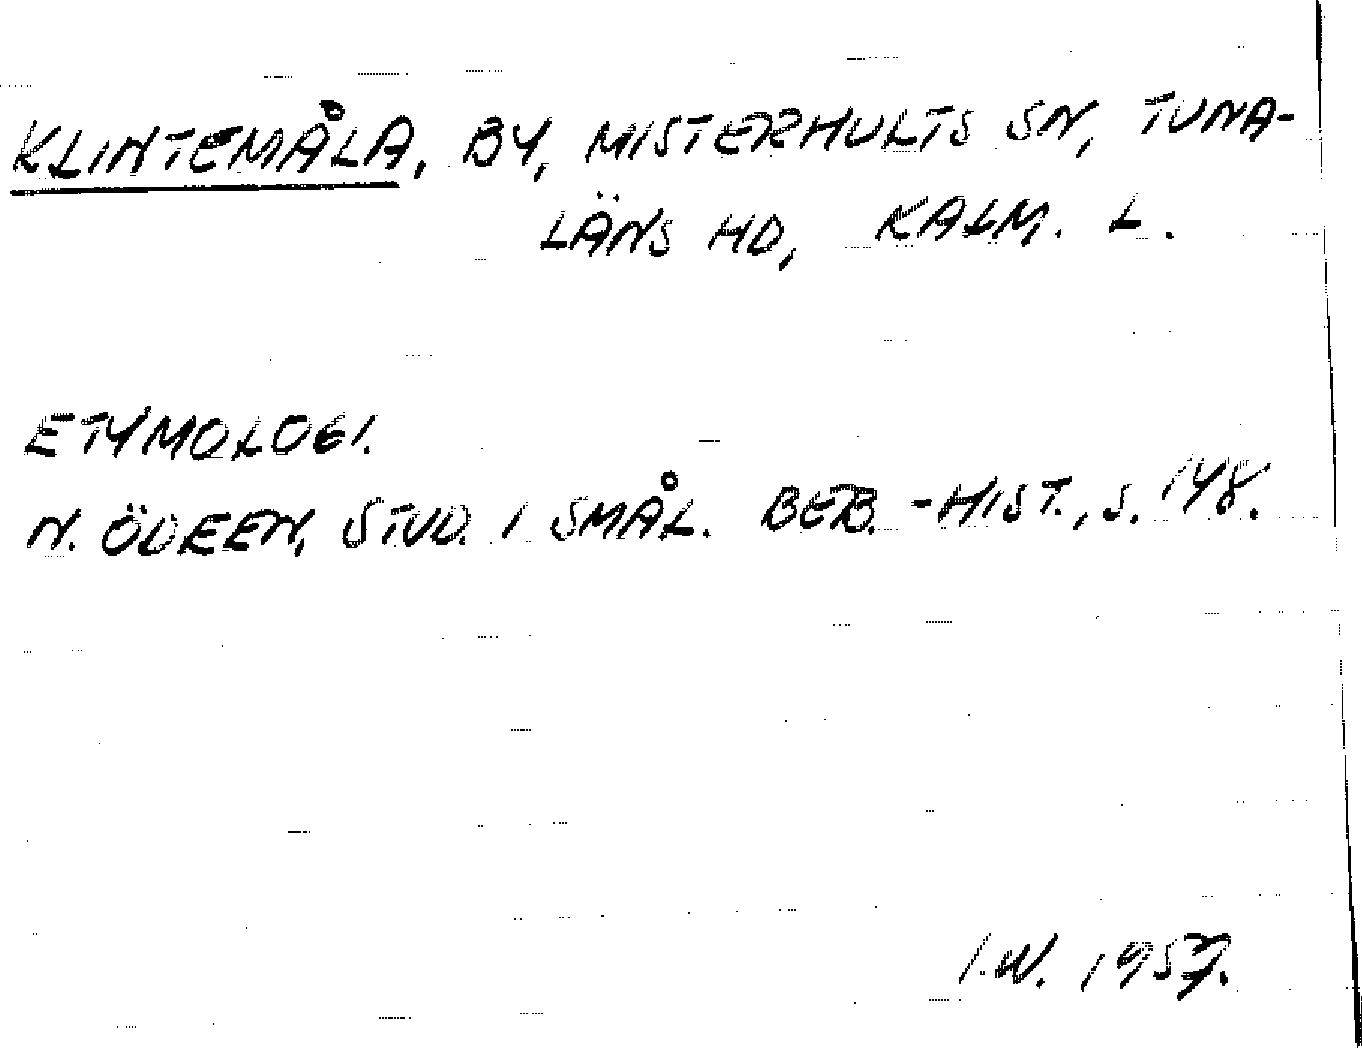 KLINTEMÅLA, BY, MISTERHULTS SN, TUNA-
LÄNS HD, KALM. L.
ETYMOLOGI.
N. ÖDEEN, STUD. I SMÅL. BEB.-HIST., S. 148.
I.W. 1957.